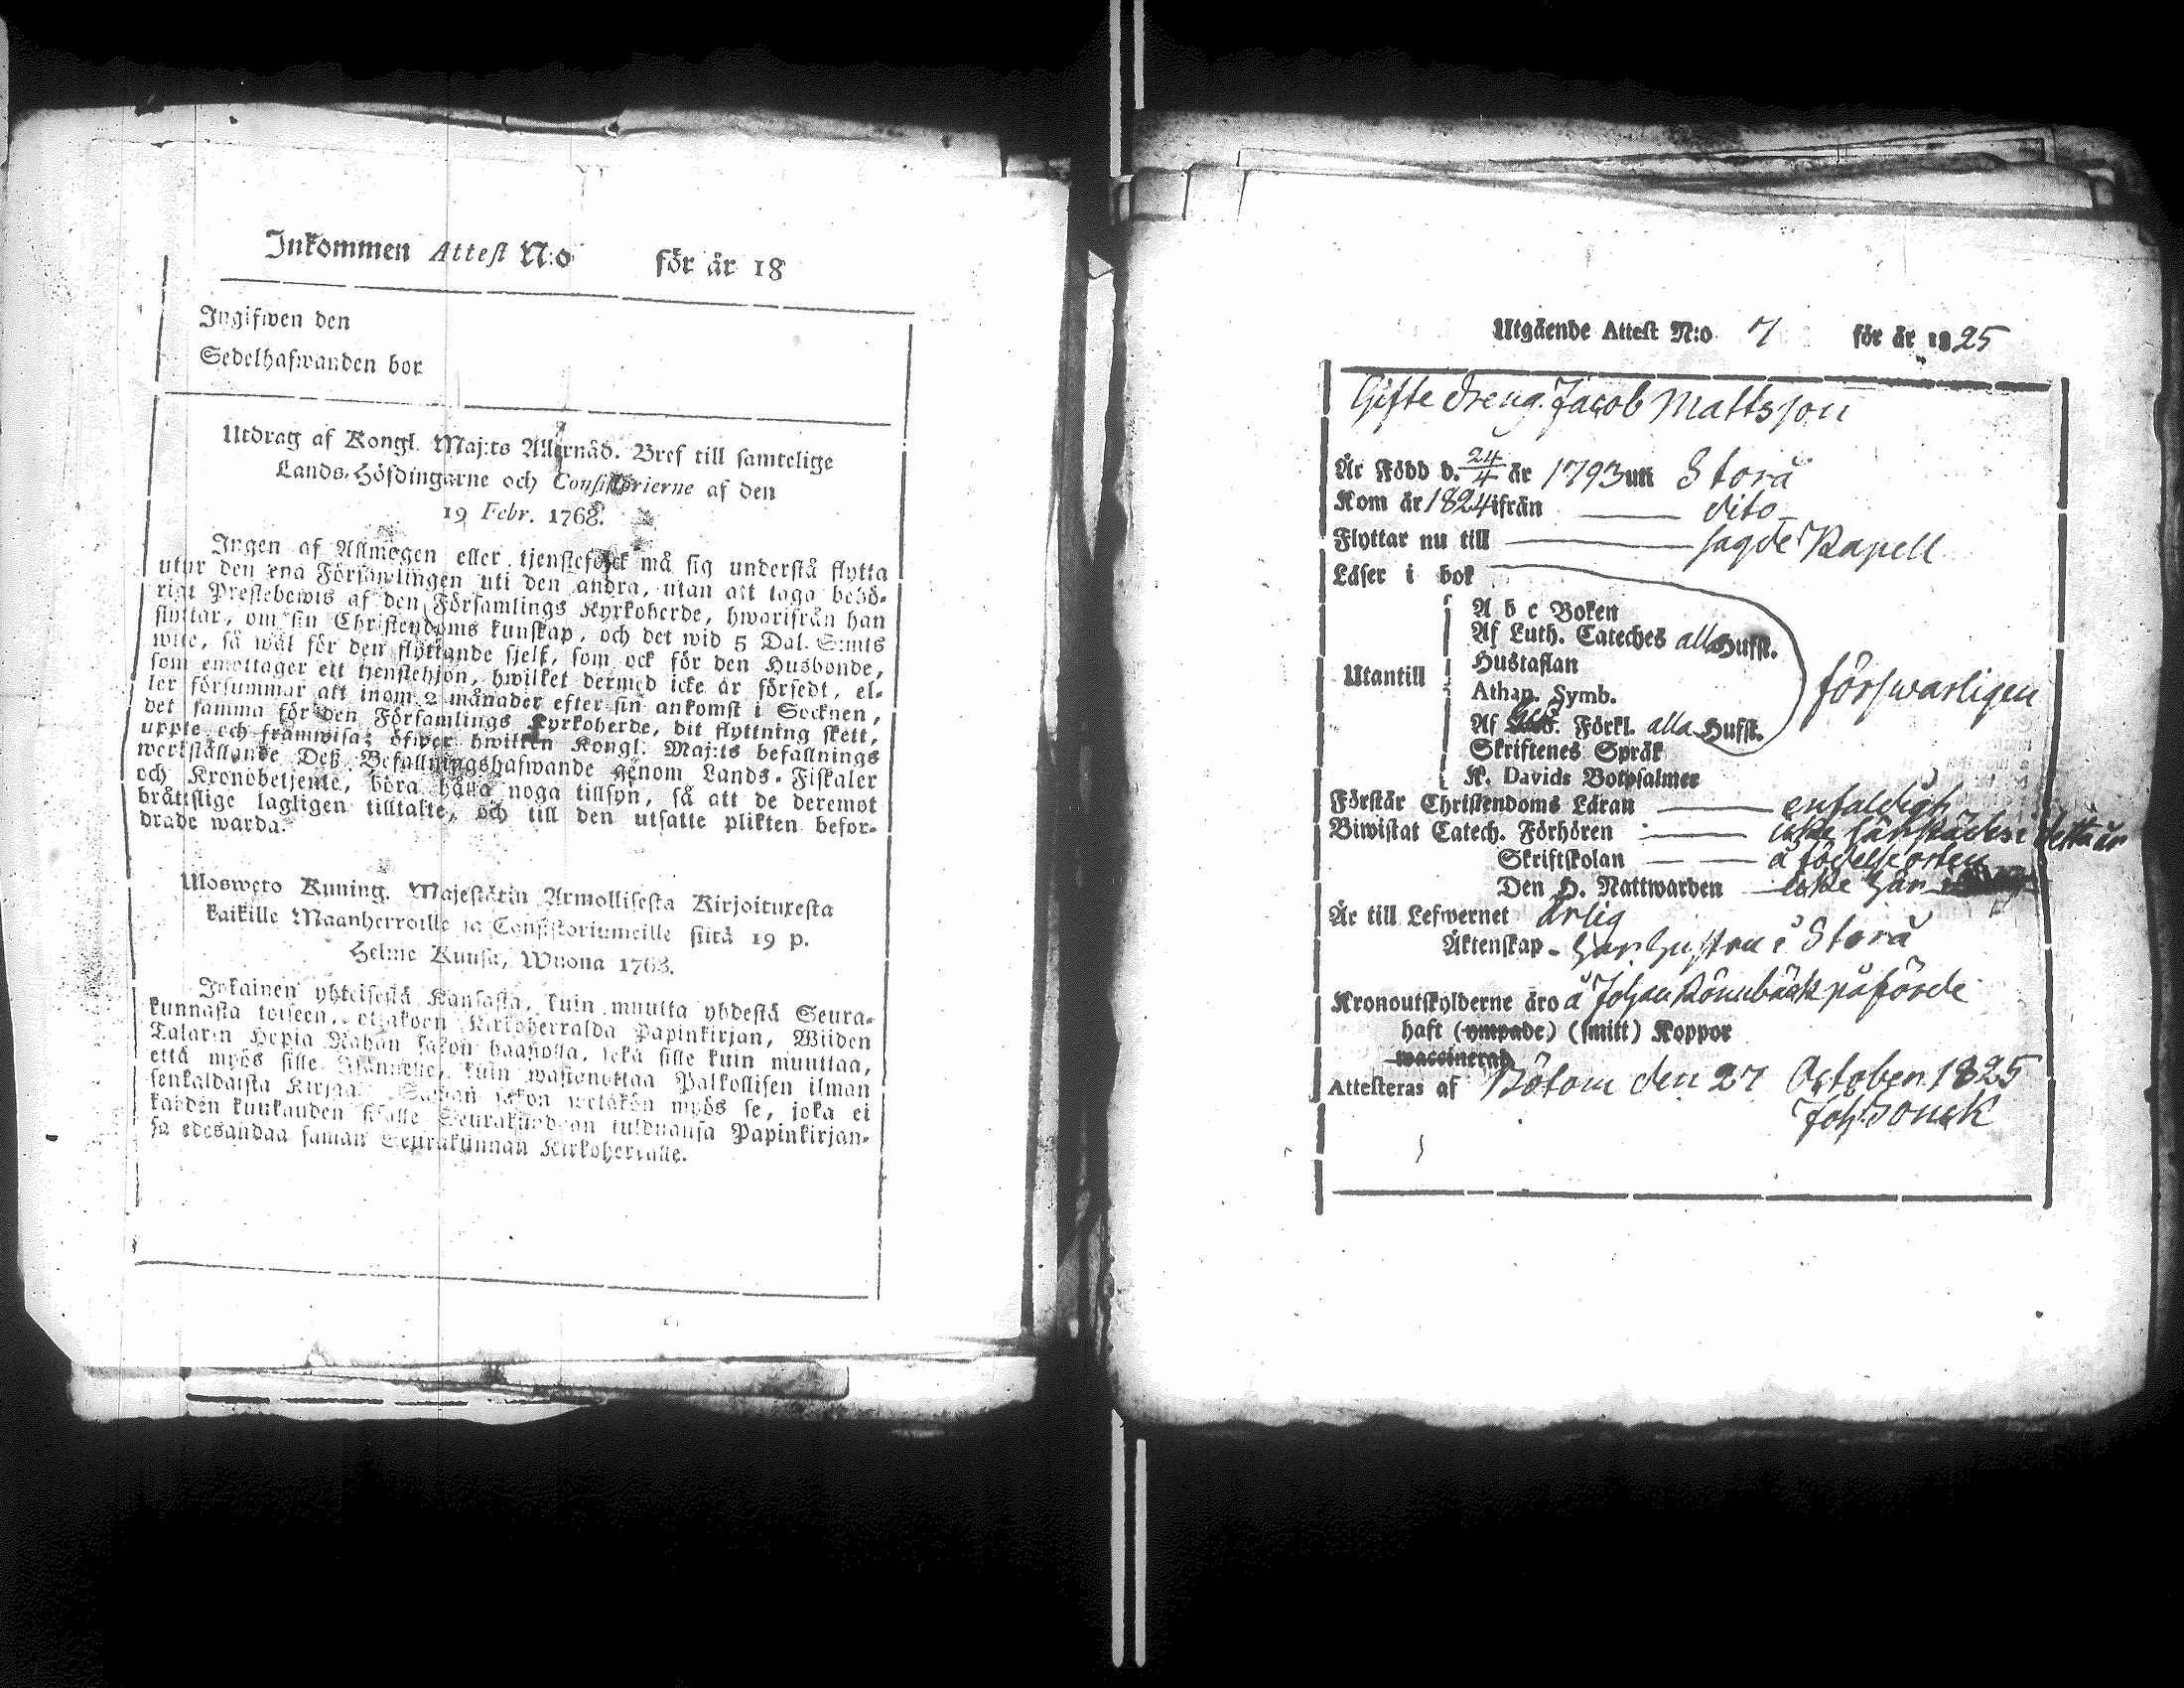 Inkommen Attest N:o för år 18
Ingifwen den
Sedelhafwanden bor
Utdrag af Kongl. Maj:ts Allernåd. Bref till samtelige
Lands-Höfdingarne och Consistorierne af den
19 Febr. 1768.
Ingen af Allmogen eller tjenstefolck må sig understå flytta
utur den ena Församlingen uti den andra, utan att taga behö-
rigt Prestebewis af den Församlings Kyrkoherde, hwarifrån han
flyttar, om sin Christendoms kunskap, och det wid 5 Dal. S:mts
wite, så wäl för den flyttande sjelf, som ock för den Husbonde,
som emottager ett tjenstehjon, hwilket dermed icke är försedt, el-
ler försummar att inom 2 månader efter sin ankomst i Socknen,
det samma för den Församlings Kyrkoherde, dit flyttning skett,
uppte och framwisa; öfwer hwilken Kongl. Maj:ts befallnings
werkställande Deß Befallningshafwande genom Lands-Fiskaler
och Kronobetjente, böra hålla noga tillsyn, så att de deremot
bråttslige lagligen tilltalte, och till den utsatte plikten befor-
drade warda.
Ulosweto Kuning. Majestätin Armollisesta Kirjoituxesta
kaikille Maanherroille ja Consistoriumeille siitä 19 p.
Helme Kuusa, Wuona 1768.
Jokainen yhteisestä Kansasta, kuin muutta yhdestä Seura-
kunnasta toiseen, ottakoon Kirkoherralda Papinkirjan, Wiiden
Talarin Hopia Rahan sakon haastolla, sekä sille kuin muuttaa,
että myös sille Isännälle, kuin wastanottaa Palkollisen ilman
senkaldaista Kirjaa. Saman sakon wetäkön myös se, joka ei
kahden kuukauden sisälle Seurakundaan tulduansa Papinkirjan-
sa edesandaa saman Seurakunnan Kirkoherralle.
Utgående Attest N:o 7 för år 1825
Gifte dreng. Jacob Mattsson
Är Född d. 24/4 år 1793 uti Storå
Kom år 1824 ifrån dito
Flyttar nu till sagde Kapell
Läser i bok
A b c Boken
Af Luth. Cateches alla Hufst.
Hustaflan
Utantill
Athan. Symb.
försvarligen
Af Förkl. alla Hufst.
Skriftenes Språk
K. Davids Botpsalmer
Förstår Christendoms Läran enfaldigt
Biwistat Catech. Förhören icke här i detta år
Skriftskolan å födelseorten
Den H. Nattwarden icke här
Är till Lefwernet ärlig
Äktenskap - har hustru i Storå
Kronoutskylderne äro å Johan Rönnbäck påförde
haft (ympade) (smitt) Koppor
waccinerad
Attesteras af Bötom den 27 October 1825
Joh: Bonsk